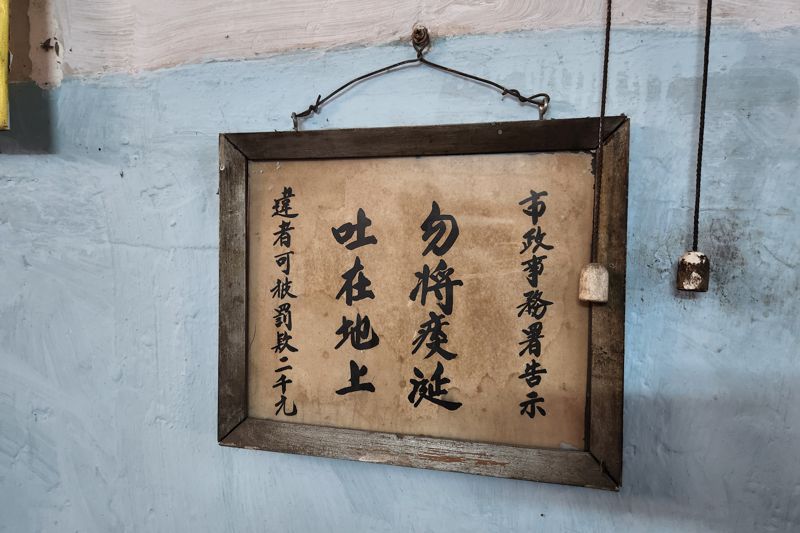 市政事務署告示
勿將疫誕
吐在地上
違者可被罰款二千元